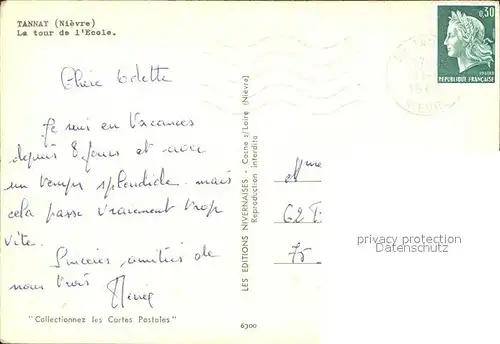 TANNAY (Nièvre)
La tour de l'Ecole.
0,30
REPUBLIQUE FRANÇAISE
Chère Odette
Je suis en Vacances
depuis 8 jours et avec
un temps splendide mais
cela passe vraiment trop
vite.
Sincères amitiés de
nous trois
LES EDITIONS NIVERNAISES - Cosne s/Loire (Nièvre)
Reproduction interdite
Mme
62
75
privacy protection
Datenschutz
"Collectionnez les Cartes Postales"
6300